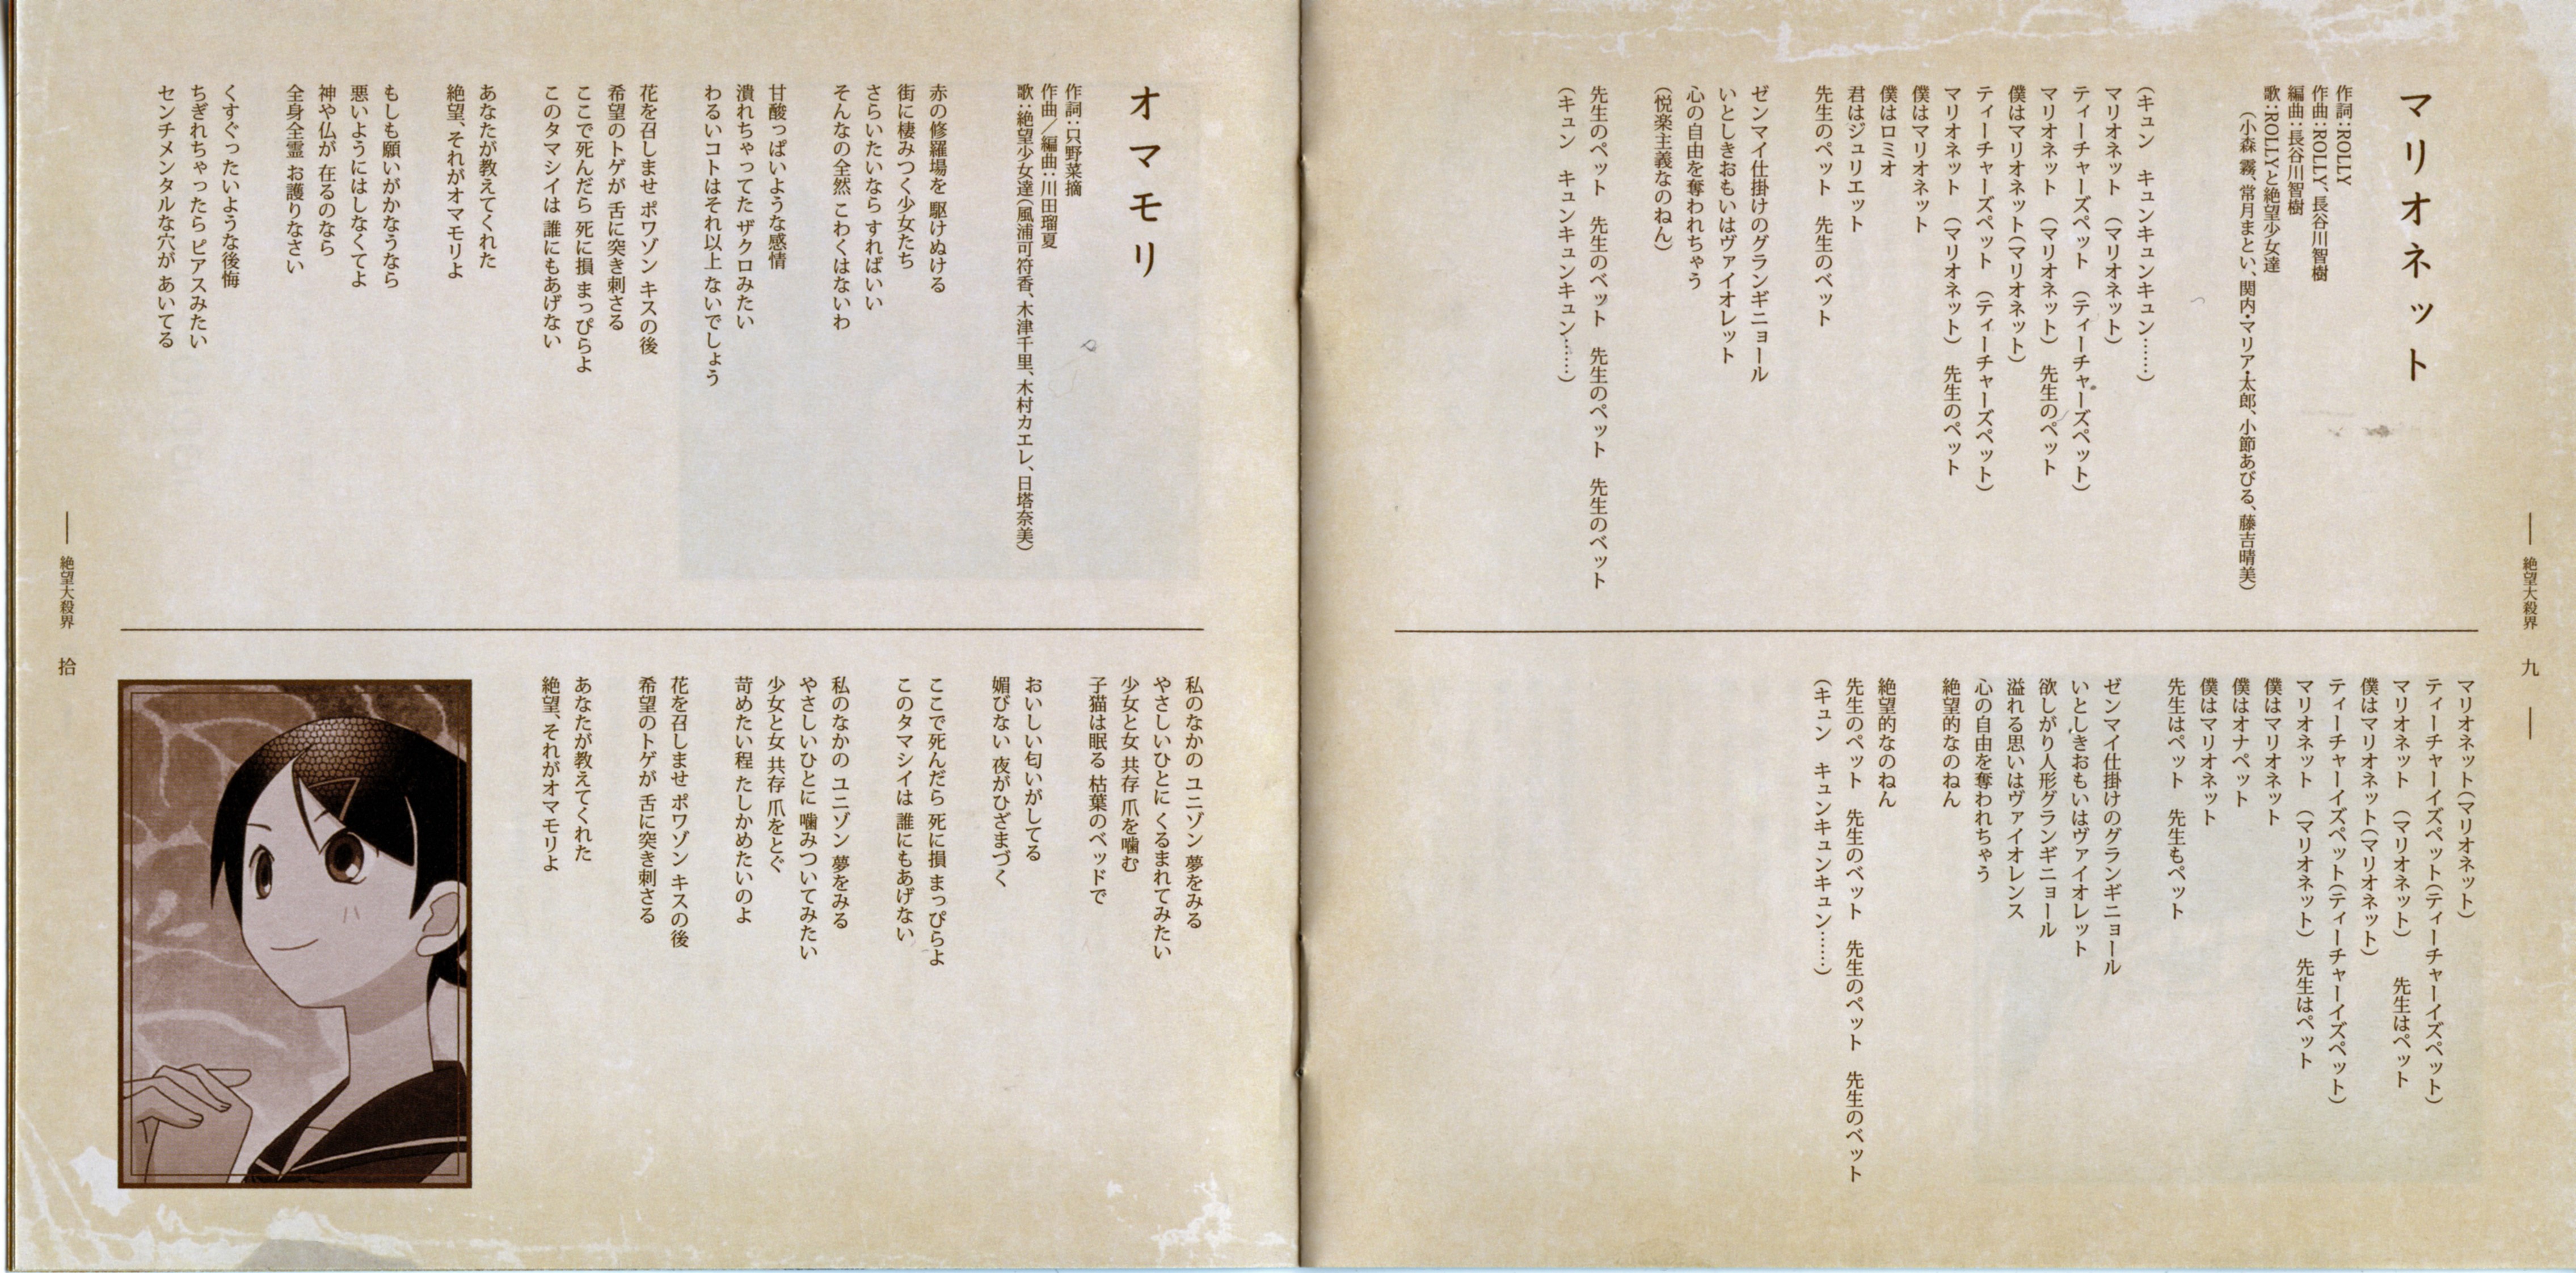 マリオネット
作詞：ROLLY
作曲：ROLLY、長谷川智樹
編曲：長谷川智樹
歌：ROLLYと絶望少女達
（小森 霧、常月まとい、関内・マリア・太郎、小節あびる、藤吉晴美）
（キュン　キュンキュンキュン……）
マリオネット　（マリオネット）
ティーチャーズペット　（ティーチャーズペット）
マリオネット　（マリオネット）　先生のペット
僕はマリオネット（マリオネット）
ティーチャーズペット　（ティーチャーズペット）
マリオネット　（マリオネット）　先生のペット
僕はマリオネット
僕はロミオ
君はジュリエット
先生のペット　先生のベット
ゼンマイ仕掛けのグランギニョール
いとしきおもいはヴァイオレット
心の自由を奪われちゃう
（悦楽主義なのねん）
先生のペット　先生のベット　先生のペット　先生のベット
（キュン　キュンキュンキュン……）
マリオネット（マリオネット）
ティーチャーイズペット（ティーチャーイズペット）
マリオネット　（マリオネット）　先生はペット
僕はマリオネット（マリオネット）
ティーチャーイズペット（ティーチャーイズペット）
マリオネット　（マリオネット）　先生はペット
僕はマリオネット
僕はオナペット
僕はマリオネット
先生はペット　先生もペット
ゼンマイ仕掛けのグランギニョール
いとしきおもいはヴァイオレット
欲しがり人形グランギニョール
溢れる思いはヴァイオレンス
心の自由を奪われちゃう
絶望的なのねん
絶望的なのねん
先生のペット　先生のベット　先生のペット　先生のベット
（キュン　キュンキュンキュン……）
絶望大殺界　九
オマモリ
作詞：只野菜摘
作曲／編曲：川田瑠夏
歌：絶望少女達（風浦可符香、木津千里、木村カエレ、日塔奈美）
赤の修羅場を 駆けぬける
街に棲みつく少女たち
さらいたいなら すればいい
そんなの全然 こわくはないわ
甘酸っぱいような感情
潰れちゃってた ザクロみたい
わるいコトはそれ以上 ないでしょう
花を召しませ ポワゾン キスの後
希望のトゲが 舌に突き刺さる
ここで死んだら 死に損 まっぴらよ
このタマシイは 誰にもあげない
あなたが教えてくれた
絶望、それがオマモリよ
もしも願いがかなうなら
悪いようにはしなくてよ
神や仏が 在るのなら
全身全霊 お護りなさい
くすぐったいような後悔
ちぎれちゃったら ピアスみたい
センチメンタルな穴が あいてる
私のなかの ユニゾン 夢をみる
やさしいひとに くるまれてみたい
少女と女 共存 爪を噛む
子猫は眠る 枯葉のベッドで
おいしい匂いがしてる
媚びない 夜がひざまづく
ここで死んだら 死に損 まっぴらよ
このタマシイは 誰にもあげない
私のなかの ユニゾン 夢をみる
やさしいひとに 噛みついてみたい
少女と女 共存 爪をとぐ
苛めたい程 たしかめたいのよ
花を召しませ ポワゾン キスの後
希望のトゲが 舌に突き刺さる
あなたが教えてくれた
絶望、それがオマモリよ
絶望大殺界　拾